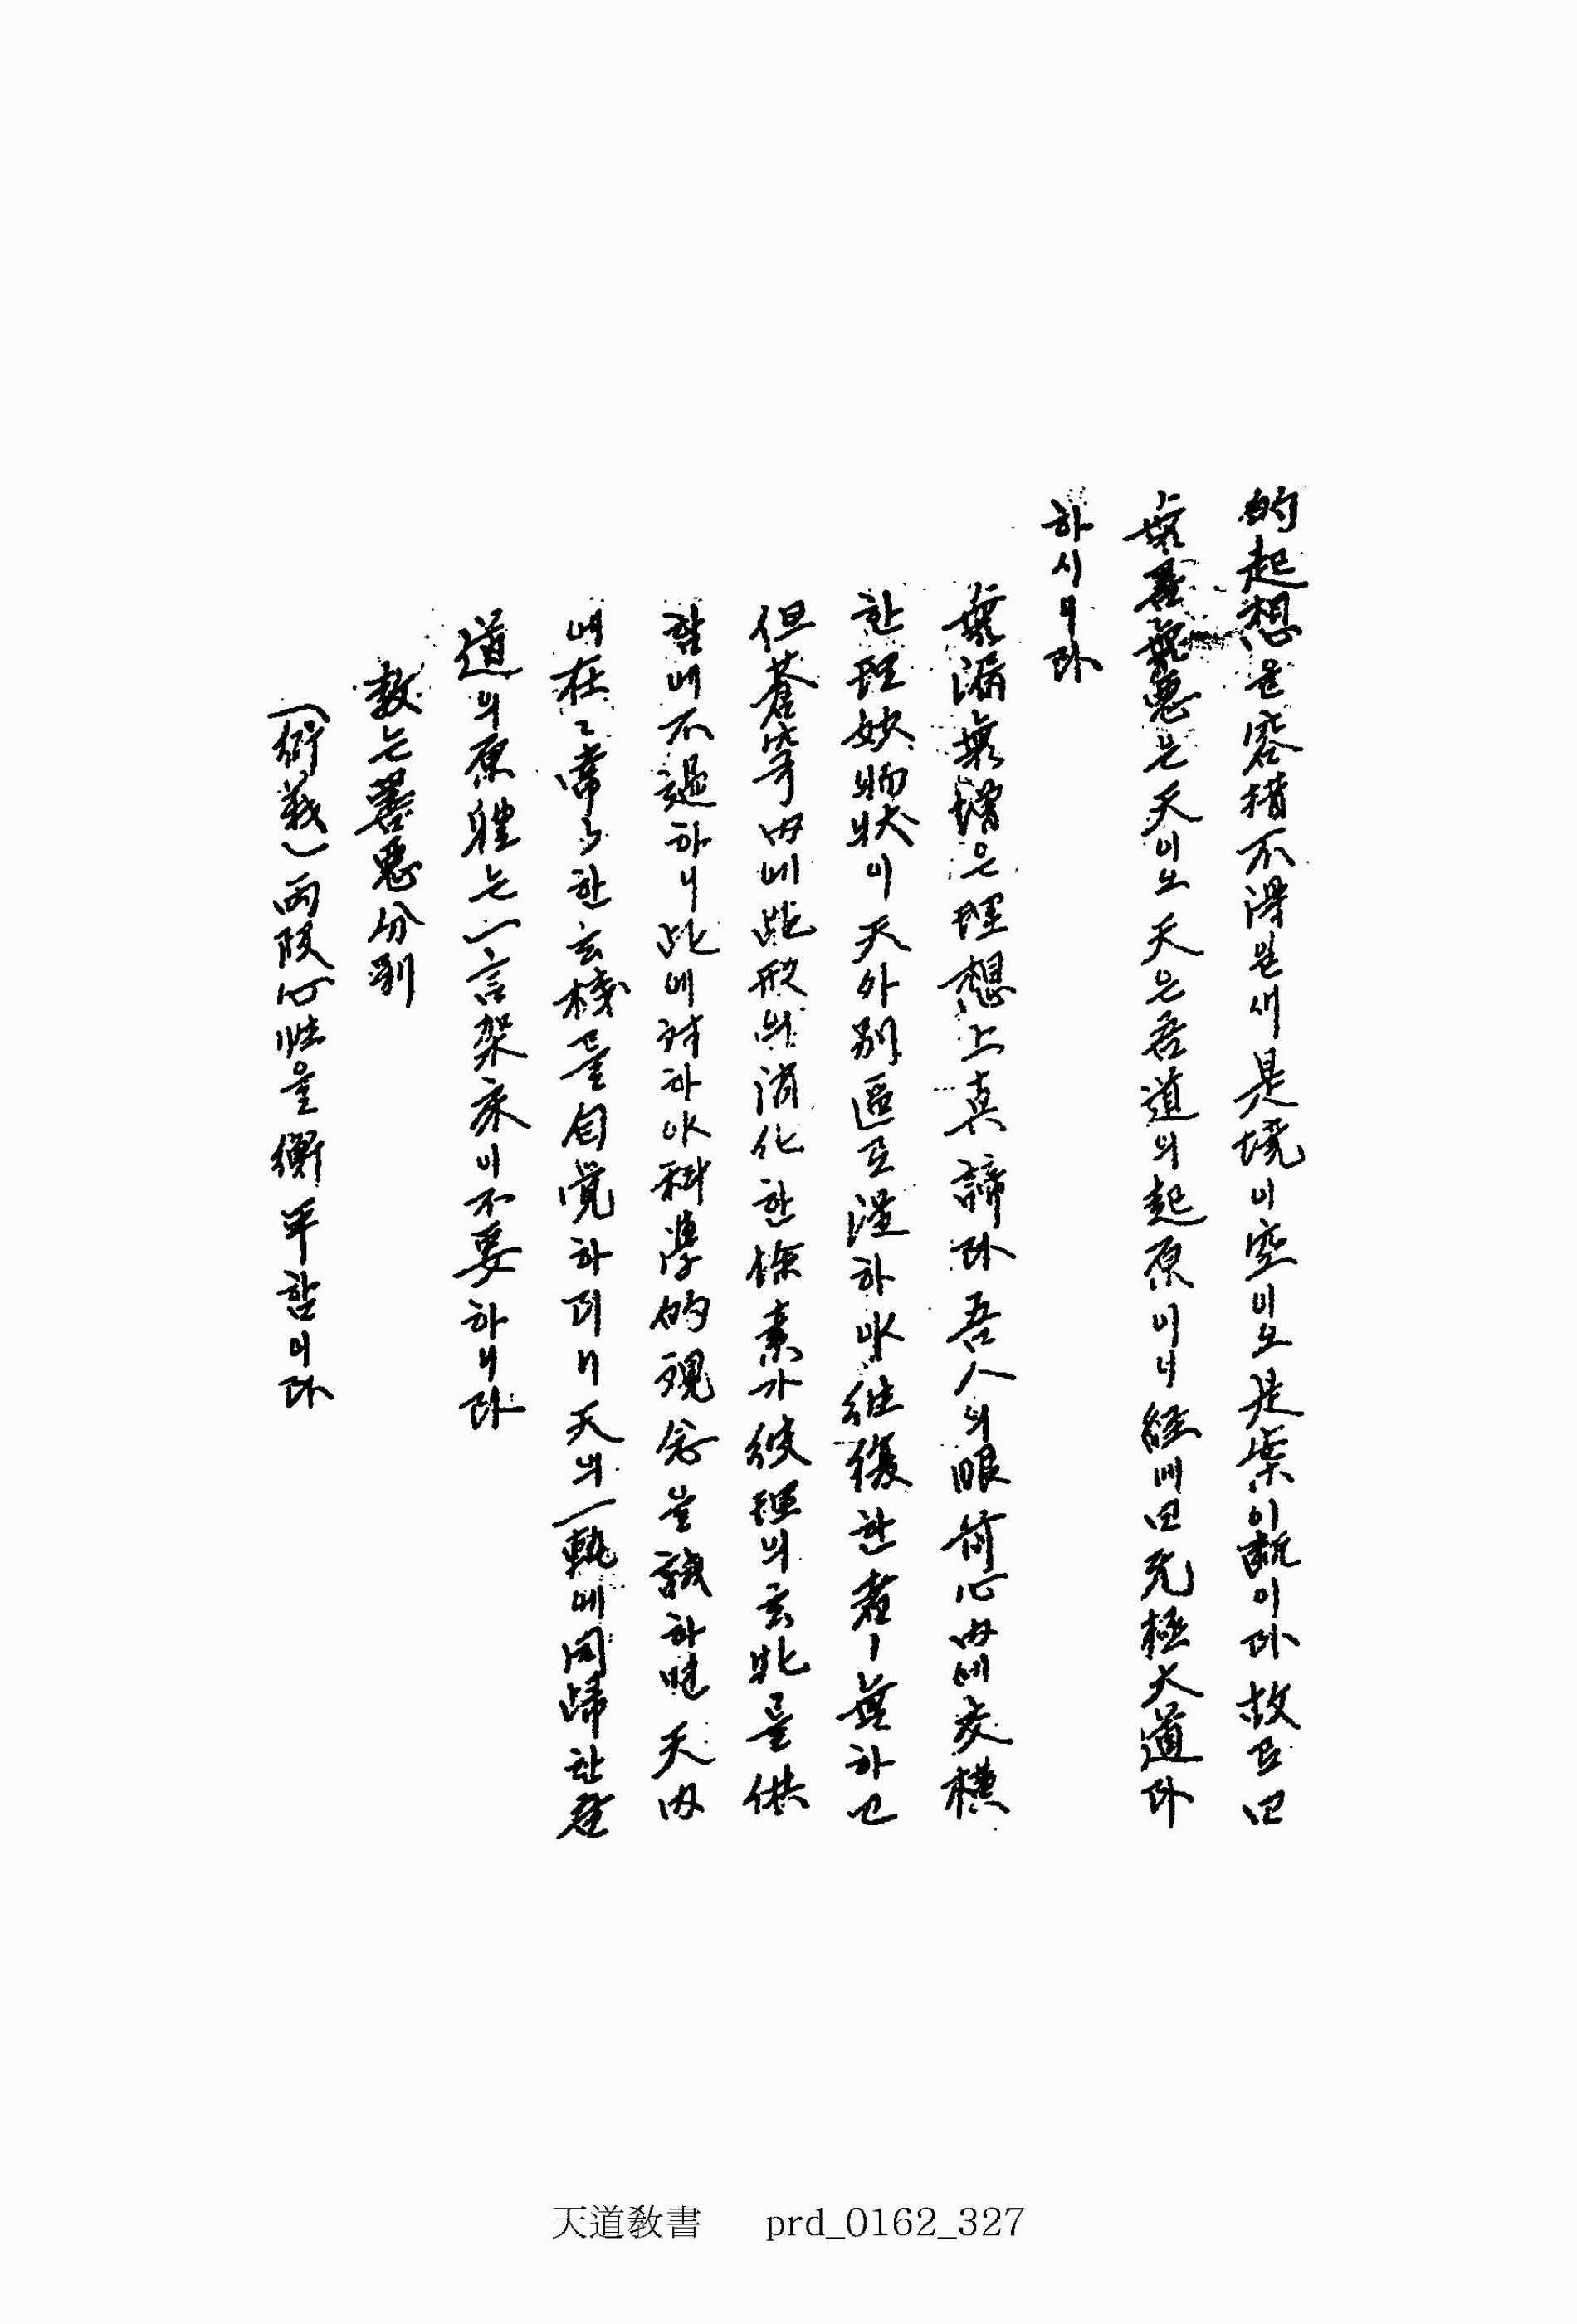 的起想을容措不得인새是境이空이오是案이說이라故로曰
無善無惡은天이오天은吾道의起原이니經에曰无極大道라
하시니라
無漏無增은理想上眞諦라吾人의眼前心內에交橫
한理妙物狀이天外別區로湼하야往復한者ㅣ無하고
但蒼穹內에此形의消化한餘素가彼理의玄牝를供
함에不過하니此에對하야科學的觀念을誠하면天內
에在々常々한玄機를自覺하리니天의一軌에同歸한吾
道의原體는一言架疊이不要하니라
敎는善惡分別
(衍義)兩段心性을衡平함이라
天道敎書 prd_0162_327